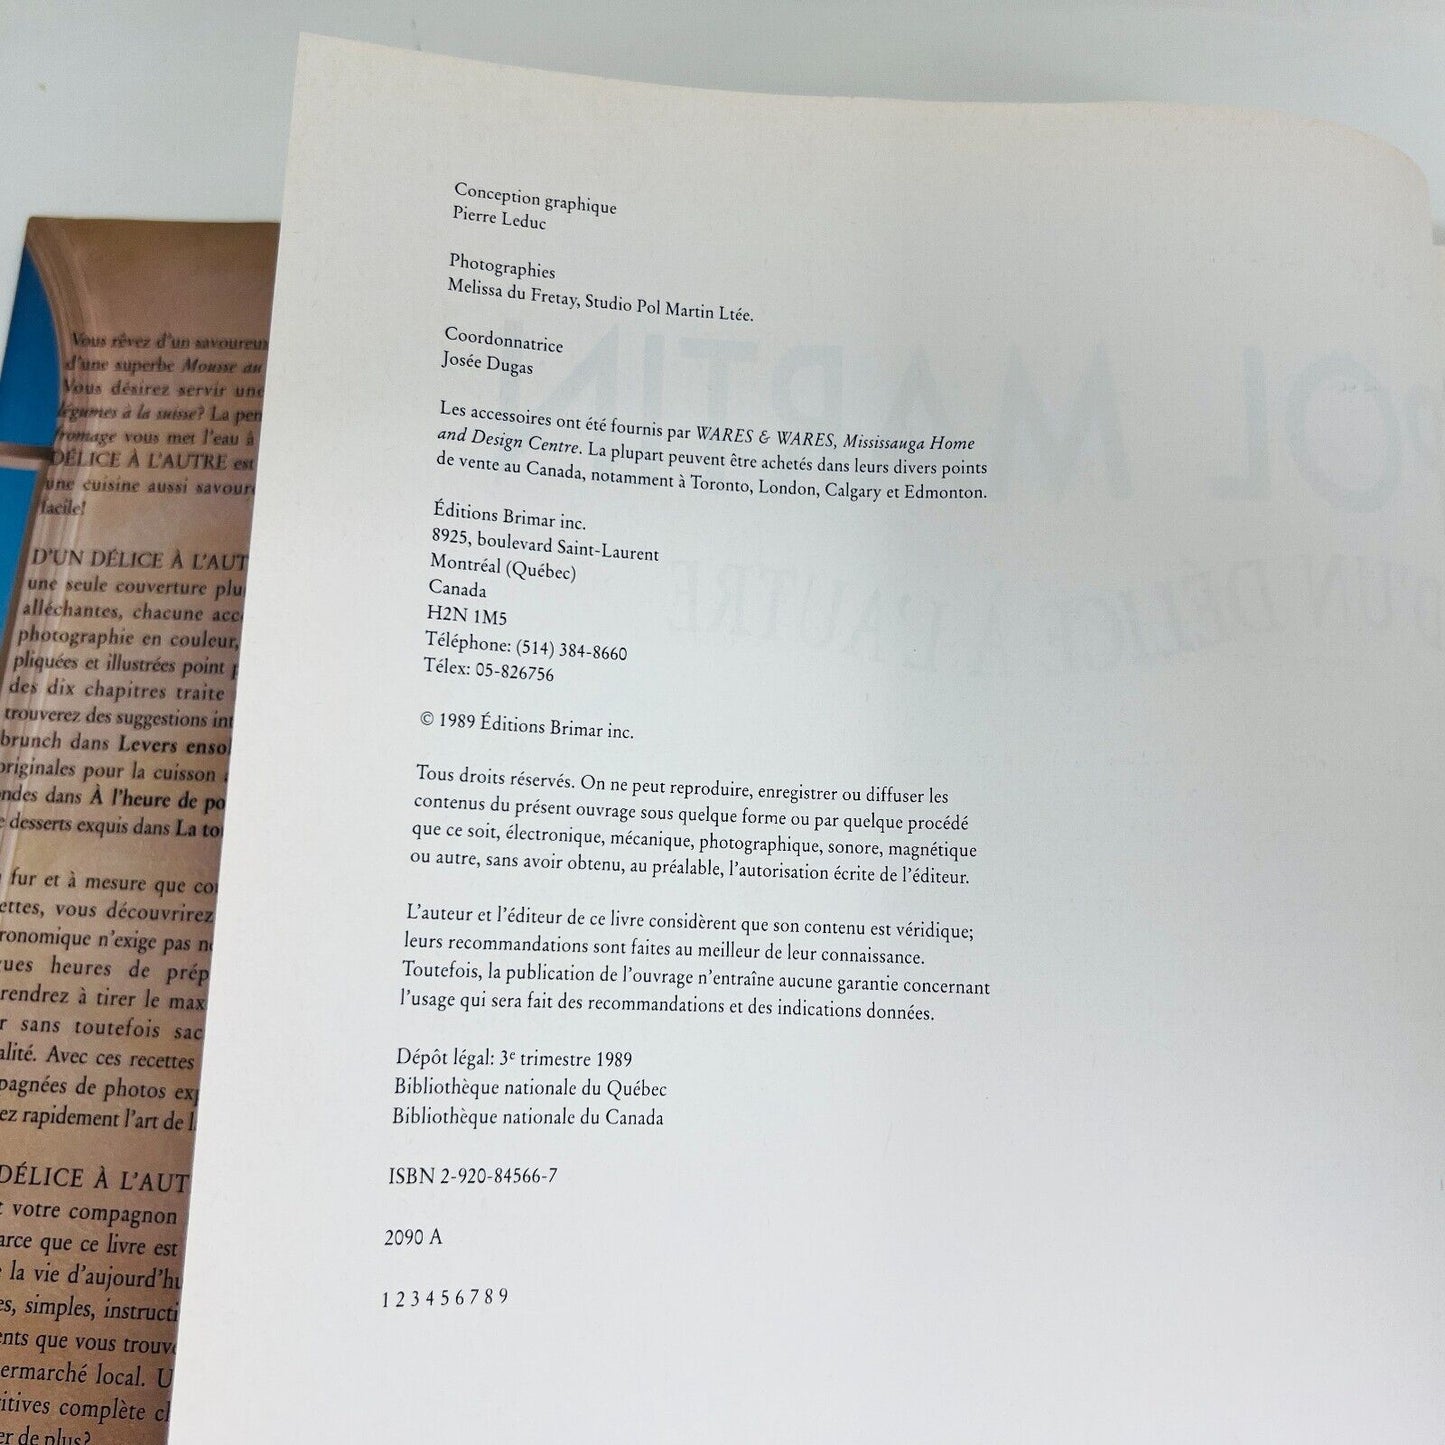 Vous rêvez d'un savoureux
d'une superbe Mousse au
Vous désirez servir une
légumes à la suisse? La
fromage vous met l'eau à
DÉLICE À L'AUTRE est
une cuisine aussi
facile!
D'UN DÉLICE À
une seule couverture
alléchantes, chacune
photographie en couleur,
pliquées et illustrées point
des dix chapitres traite
trouverez des suggestions
brunch dans Levers
originales pour la cuisson
dans À l'heure de
desserts exquis dans La
fur et à mesure que
vous découvrirez
n'exige pas
heures de
à tirer le
sans toutefois
Avec ces recettes
de photos
rapidement l'art de
DÉLICE À
votre compagnon
que ce livre est
la vie d'aujourd'hui
simples,
que vous
local.
complète
de plus?
Conception graphique
Pierre Leduc
Photographies
Melissa du Fretay, Studio Pol Martin Ltée.
Coordonnatrice
Josée Dugas
Les accessoires ont été fournis par WARES & WARES, Mississauga Home
and Design Centre. La plupart peuvent être achetés dans leurs divers points
de vente au Canada, notamment à Toronto, London, Calgary et Edmonton.
Éditions Brimar inc.
8925, boulevard Saint-Laurent
Montréal (Québec)
Canada
H2N 1M5
Téléphone: (514) 384-8660
Télex: 05-826756
© 1989 Éditions Brimar inc.
Tous droits réservés. On ne peut reproduire, enregistrer ou diffuser les
contenus du présent ouvrage sous quelque forme ou par quelque procédé
que ce soit, électronique, mécanique, photographique, sonore, magnétique
ou autre, sans avoir obtenu, au préalable, l'autorisation écrite de l'éditeur.
L'auteur et l'éditeur de ce livre considèrent que son contenu est véridique;
leurs recommandations sont faites au meilleur de leur connaissance.
Toutefois, la publication de l'ouvrage n'entraîne aucune garantie concernant
l'usage qui sera fait des recommandations et des indications données.
Dépôt légal: 3e trimestre 1989
Bibliothèque nationale du Québec
Bibliothèque nationale du Canada
ISBN 2-920-84566-7
2090 A
1 2 3 4 5 6 7 8 9